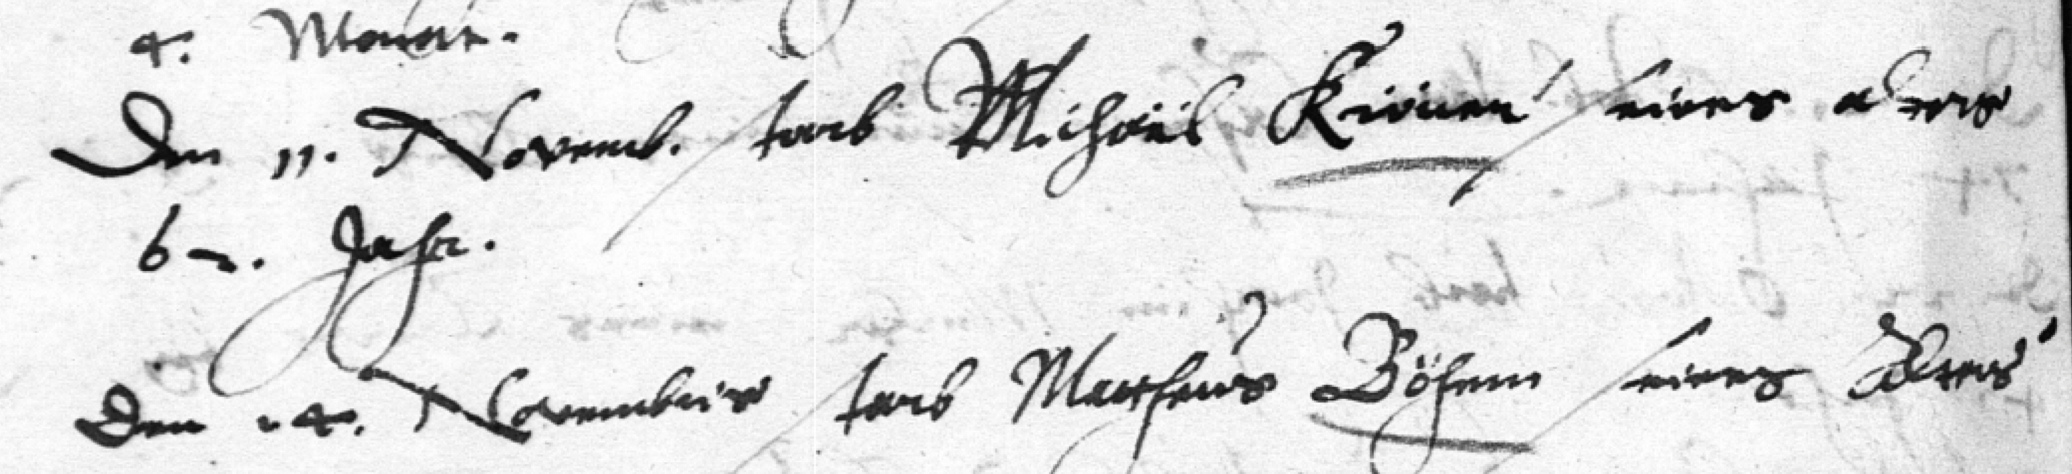 4. Monat.
Den 11. Novemb. starb Michäel Kröner seines alters
62. Jahr.
Den 24. Novembris starb Mattheus Böhem seines Alters